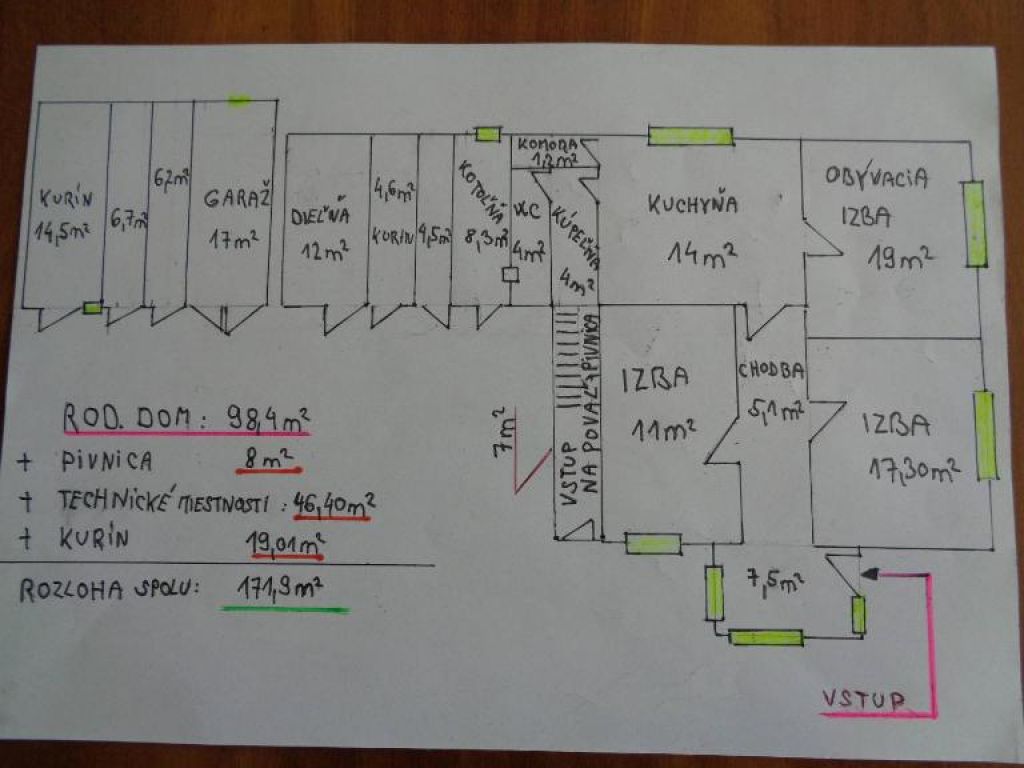 KURÍN
14,5m²
6,7m²
6,2m²
GARAŽ
17m²
DIEĽŇA
12m²
4,6m²
KURÍN
4,5m²
KOTOLŇA
8,3m²
KOMORA
1,2m²
WC
4m²
KÚPEĽŇA
4m²
KUCHYŇA
14m²
OBÝVACIA
IZBA
19m²
IZBA
11m²
CHODBA
5,1m²
IZBA
17,30m²
VSTUP
NA POVAL + PIVNICA
7m²
7,5m²
VSTUP
ROD. DOM: 98,4m²
+ PIVNICA 8m²
+ TECHNICKÉ MIESTNOSTI: 46,40m²
+ KURÍN 19,01m²
ROZLOHA SPOLU: 171,9m²